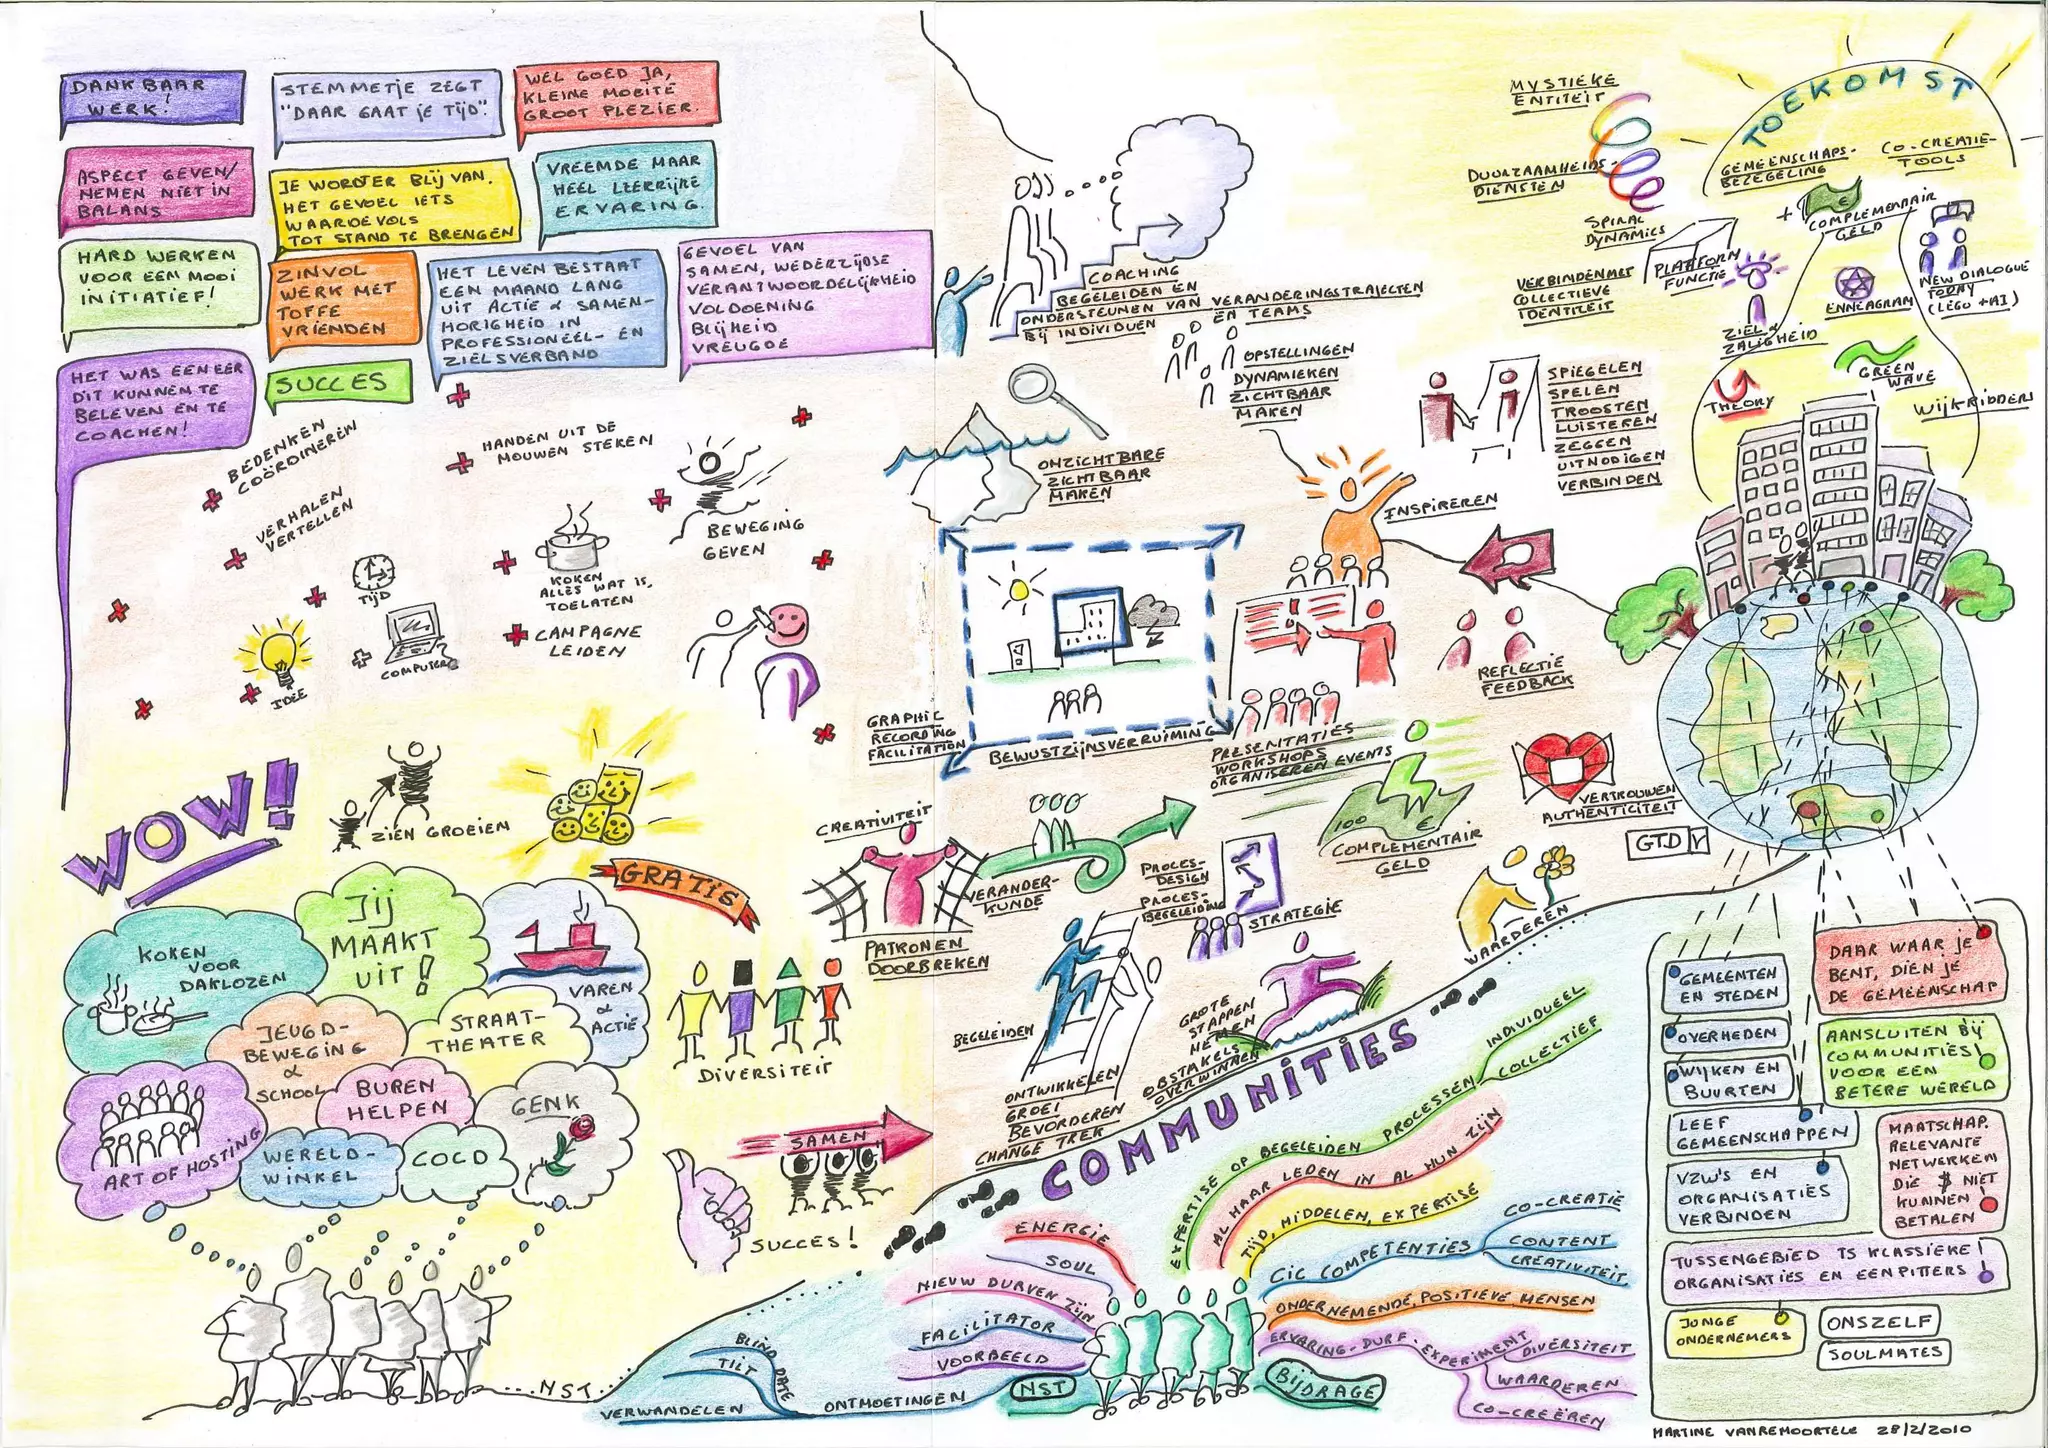 DANKBAAR
WERK!
STEMMETJE ZEGT
"DAAR GAAT JE TIJD".
WEL GOED JA,
KLEINE MOEITE
GROOT PLEZIER.
ASPECT GEVEN/
NEMEN NIET IN
BALANS
JE WORDT ER BLIJ VAN.
HET GEVOEL IETS
WAARDEVOLS
TOT STAND TE BRENGEN
VREEMDE MAAR
HEEL LEERRIJKE
ERVARING.
HARD WERKEN
VOOR EEN MOOI
INITIATIEF!
ZINVOL
WERK MET
TOFFE
VRIENDEN
HET LEVEN BESTAAT
EEN MAAND LANG
UIT ACTIE & SAMEN-
HORIGHEID IN
PROFESSIONEEL- EN
ZIELSVERBAND
GEVOEL VAN
SAMEN, WEDERZIJDSE
VERANTWOORDELIJKHEID
VOLDOENING
BLIJHEID
VREUGDE
HET WAS EEN EER
DIT KUNNEN TE
BELEVEN EN TE
COACHEN!
SUCCES
BEDENKEN
COÖRDINEREN
HANDEN UIT DE
MOUWEN STEKEN
VERHALEN
VERTELLEN
BEWEGING
GEVEN
TIJD
KOKEN
ALLES WAT IS,
TOELATEN
COMPUTER
CAMPAGNE
LEIDEN
IDEE
WOW!
ZIEN GROEIEN
GRATIS
KOKEN
VOOR
DAKLOZEN
JIJ
MAAKT
UIT!
VAREN
&
ACTIE
JEUGD-
BEWEGING
&
SCHOOL
STRAAT-
THEATER
BUREN
HELPEN
GENK
ART OF HOSTING
WERELD-
WINKEL
COCD
DIVERSITEIT
SAMEN
SUCCES!
...NST...
COACHING
BEGELEIDEN EN
ONDERSTEUNEN VAN VERANDERINGSTRAJECTEN
BIJ INDIVIDUEN
EN TEAMS
OPSTELLINGEN
DYNAMIEKEN
ZICHTBAAR
MAKEN
ONZICHTBARE
ZICHTBAAR
MAKEN
SPIEGELEN
SPELEN
TROOSTEN
LUISTEREN
ZEGGEN
UITNODIGEN
VERBINDEN
INSPIREREN
REFLECTIE
FEEDBACK
GRAPHIC
RECORDING
FACILITATION
BEWUSTZIJNSVERRUIMING
PRESENTATIES
WORKSHOPS
ORGANISEREN EVENTS
VERTROUWEN
AUTHENTICITEIT
GTD
100 €
COMPLEMENTAIR
GELD
CREATIVITEIT
PATRONEN
DOORBREKEN
VERANDER-
KUNDE
PROCES-
DESIGN
PROCES-
BEGELEIDING
STRATEGIE
WAARDEREN
BEGELEIDEN
ONTWIKKELEN
GROEI
BEVORDEREN
CHANGE TREK
GROTE
STAPPEN
NEMEN
OBSTAKELS
OVERWINNEN
MYSTIEKE
ENTITEIT
DUURZAAMHEIDS-
DIENSTEN
SPIRAL
DYNAMICS
VERBINDEN MET
COLLECTIEVE
IDENTITEIT
TOEKOMST
GEMEENSCHAPS-
BEZEGELING
CO-CREATIE-
TOOLS
+
€
COMPLEMENTAIR
GELD
PLATFORM
FUNCTIE
ZIEL &
ZALIGHEID
ENNEAGRAM
NEW DIALOGUE
TODAY
(LEGO + AI)
THEORY
GREEN
WAVE
WIJKRIDDERS
COMMUNITIES
EXPERTISE OP BEGELEIDEN PROCESSEN
INDIVIDUEEL
COLLECTIEF
AL HAAR LEDEN IN AL HUN ZIJN
TIJD, MIDDELEN, EXPERTISE
CIC COMPETENTIES
CO-CREATIE
CONTENT
CREATIVITEIT
ONDERNEMENDE, POSITIEVE MENSEN
ERVARING-DURF-EXPERIMENT
DIVERSITEIT
WAARDEREN
CO-CREËREN
BIJDRAGE
ENERGIE
SOUL
NIEUW DURVEN ZIJN
FACILITATOR
VOORBEELD
NST
ONTMOETINGEN
BLIND DATE
TILT
VERWANDELEN
GEMEENTEN
EN STEDEN
OVERHEDEN
WIJKEN EN
BUURTEN
LEEF
GEMEENSCHAPPEN
VZW'S EN
ORGANISATIES
VERBINDEN
DAAR WAAR JE
BENT, DIEN JE
DE GEMEENSCHAP
AANSLUITEN BIJ
COMMUNITIES
VOOR EEN
BETERE WERELD
MAATSCHAP.
RELEVANTE
NETWERKEN
DIE $ NIET
KUNNEN
BETALEN
TUSSENGEBIED TS KLASSIEKE
ORGANISATIES EN EENPITTERS
JONGE
ONDERNEMERS
ONSZELF
SOULMATES
MARTINE VANREMOORTELE 28/2/2010